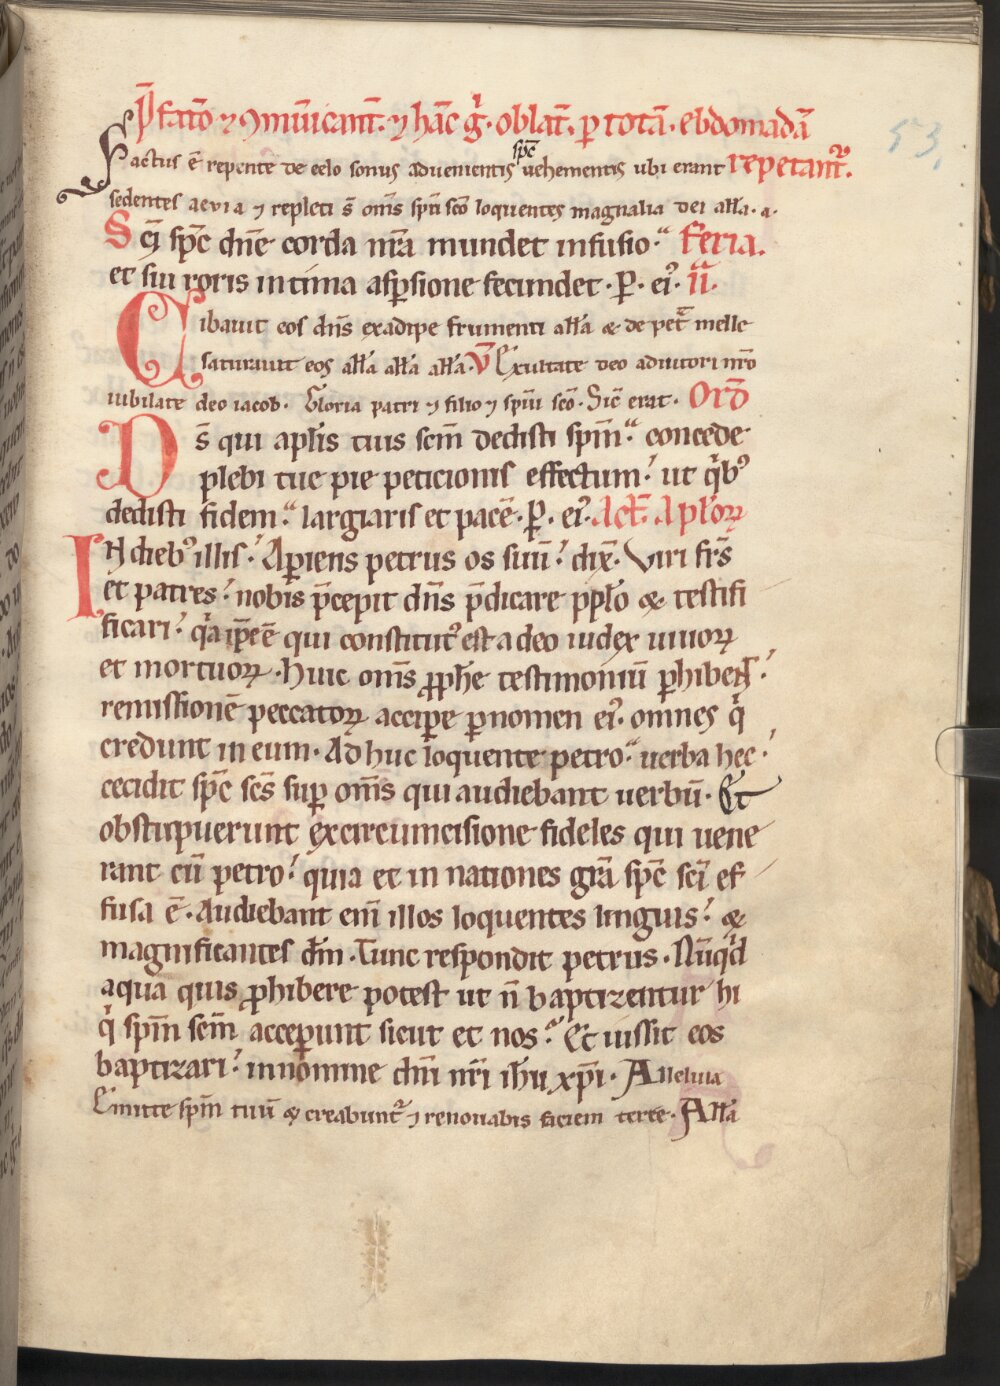 P̄fatō ⁊ ꝯmūicant̄. ⁊ hāc ḡ. oblat̄. ꝑ totā. ebdomadā
53.
Factus ē repente de celo sonus aduenientis sp̄c uehementis ubi erant repetant̄ᷣ.
sedentes aeuia ⁊ repleti s̄ om̄s sp̄u sc̄o loquentes magnalia dei all̄a. a.
Sc̄i sp̄c dn̄e corda nr̄a mundet infusio. Feria.
et sui roris intima asꝑsione fecundet. P. ei. ii.
Cibauit eos dn̄s exadipe frumenti all̄a & de pet̄ melle
saturauit eos all̄a all̄a all̄a. V̄ Exultate deo adiutori nr̄o
iubilate deo iacob. Gloria patri ⁊ filio ⁊ spiui sc̄o. Sic̄ erat. Or̄o
Ds̄ qui apl̄is tuis scm̄ dedisti spm̄. concede
plebi tue pie peticionis effectum. ut qͥbꝰ
dedisti fidem. largiaris et pacē. P. ei. Act̄. Apl̄oꝝ
In diebꝰ illis. Aꝑiens petrus os suū. dix̄. Viri fr̄s
et patres. nobis p̄cepit dn̄s p̄dicare ppl̄o & testifi
ficari. qͥa ip̄e ē qui constitutꝰ est a deo iudex uiuoꝝ
et mortuoꝝ. Huic om̄s ꝓphe testimoniū ꝑhibent̄.
remissionē peccatoꝝ accipe ꝑ nomen ei. omnes qͥ
credunt in eum. Ad huc loquente petro. uerba hec.
cecidit sp̄c sc̄s suꝑ om̄s qui audiebant uerbū. Et
obstupuerunt excircumcisione fideles qui uene
rant cū petro. quia et in nationes gr̄a sp̄c sc̄i ef
fusa ē. Audiebant eni illos loquentes linguis. &
magnificantes dm̄. Tunc respondit petrus. Nūqͥd
aqua quis ꝓhibere potest ut n̄ baptizentur hi
qͥ spm̄ scm̄ acceꝑunt sicut et nos. Et iussit eos
baptizari. in nomine dn̄i nr̄i ih̄u xp̄i. Alleluia
Emitte spm̄ tuū & creabunt̄ᷣ ⁊ renouabis faciem terre. All̄a